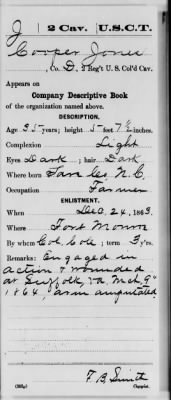 J | 2 Cav. | U.S.C.T.
Cooper Jones
, Co. D, 2 Reg't U. S. Col'd Cav.
Appears on
Company Descriptive Book
of the organization named above.
DESCRIPTION.
Age 35 years; height 5 feet 7½ inches.
Complexion Light
Eyes Dark; hair Dark
Where born N.C.
Occupation Farmer
ENLISTMENT.
When Dec. 24, 1863.
Where Fort Monroe
By whom Col. Cole; term 3 y'rs.
Remarks: Engaged in
action & wounded
at Suffolk, Va. Mch. 9"
1864, arm amputated
F. B. Smith
Copyist.